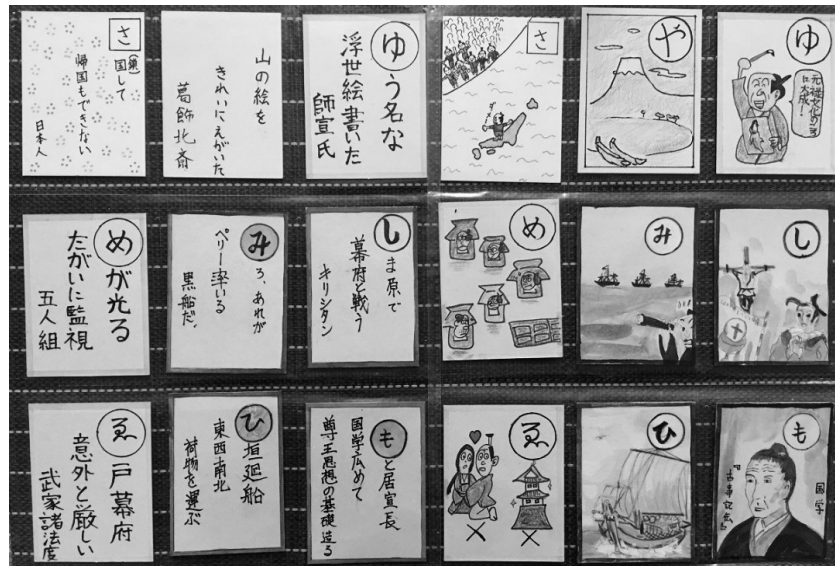 さ
(鎖)国して
帰国もできない
日本人
山の絵を
きれいにえがいた
葛飾北斎
ゆう名な
浮世絵書いた
師宣氏
さ
や
ゆ
に大成!
めが光る
たがいに監視
五人組
みろ、あれが
ペリー率いる
黒船だ。
しま原で
幕府と戦う
キリシタン
め
み
し
ゑ戸幕府
意外と厳しい
武家諸法度
ひ垣廻船
東西南北
荷物を運ぶ
もと居宣長
国学広めて
尊王思想の基礎造る
ゑ
ひ
も
国学
『古事記伝』